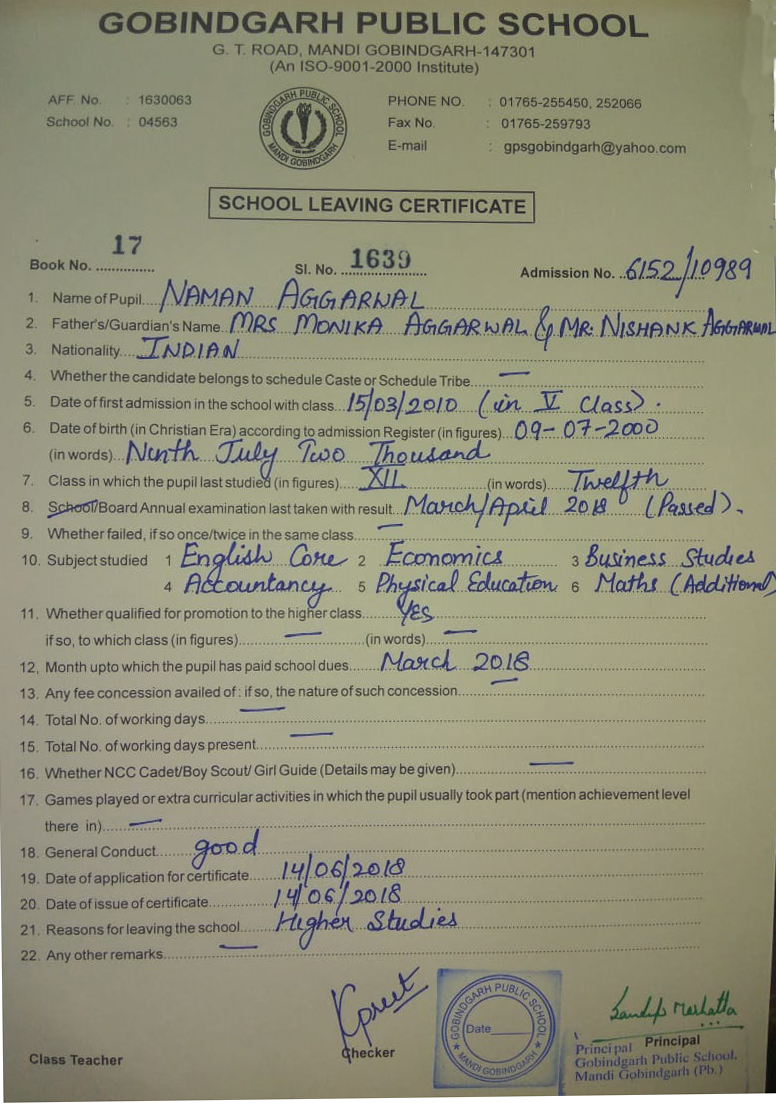 GOBINDGARH PUBLIC SCHOOL
G. T. ROAD, MANDI GOBINDGARH-147301
(An ISO-9001-2000 Institute)
AFF. No. : 1630063
School No. : 04563
GOBINDGARH PUBLIC SCHOOL
MANDI GOBINDGARH
PHONE NO. : 01765-255450, 252066
Fax No. : 01765-259793
E-mail : gpsgobindgarh@yahoo.com
SCHOOL LEAVING CERTIFICATE
Book No. 17 Sl. No. 1639 Admission No. 6152/10989
1. Name of Pupil NAMAN AGGARWAL
2. Father's/Guardian's Name MRS MONIKA AGGARWAL & MR. NISHANK AGGARWAL
3. Nationality INDIAN
4. Whether the candidate belongs to schedule Caste or Schedule Tribe —
5. Date of first admission in the school with class 15/03/2010 (in V Class).
6. Date of birth (in Christian Era) according to admission Register (in figures) 09-07-2000
(in words) Ninth July Two Thousand
7. Class in which the pupil last studied (in figures) XII (in words) Twelfth
8. School/Board Annual examination last taken with result March/April 2018 (Passed).
9. Whether failed, if so once/twice in the same class —
10. Subject studied 1 English Core 2 Economics 3 Business Studies
4 Accountancy 5 Physical Education 6 Maths (Additional)
11. Whether qualified for promotion to the higher class Yes
if so, to which class (in figures) — (in words) —
12, Month upto which the pupil has paid school dues March 2018
13. Any fee concession availed of : if so, the nature of such concession —
14. Total No. of working days —
15. Total No. of working days present —
16. Whether NCC Cadet/Boy Scout/ Girl Guide (Details may be given) —
17. Games played or extra curricular activities in which the pupil usually took part (mention achievement level
there in) —
18. General Conduct good
19. Date of application for certificate 14/06/2018
20. Date of issue of certificate 14/06/2018
21. Reasons for leaving the school Higher Studies
22. Any other remarks —
Kpreet
GOBINDGARH PUBLIC SCHOOL
Date
MANDI GOBINDGARH
Class Teacher
Checker
Principal
Principal
Gobindgarh Public School.
Mandi Gobindgarh (Pb.)